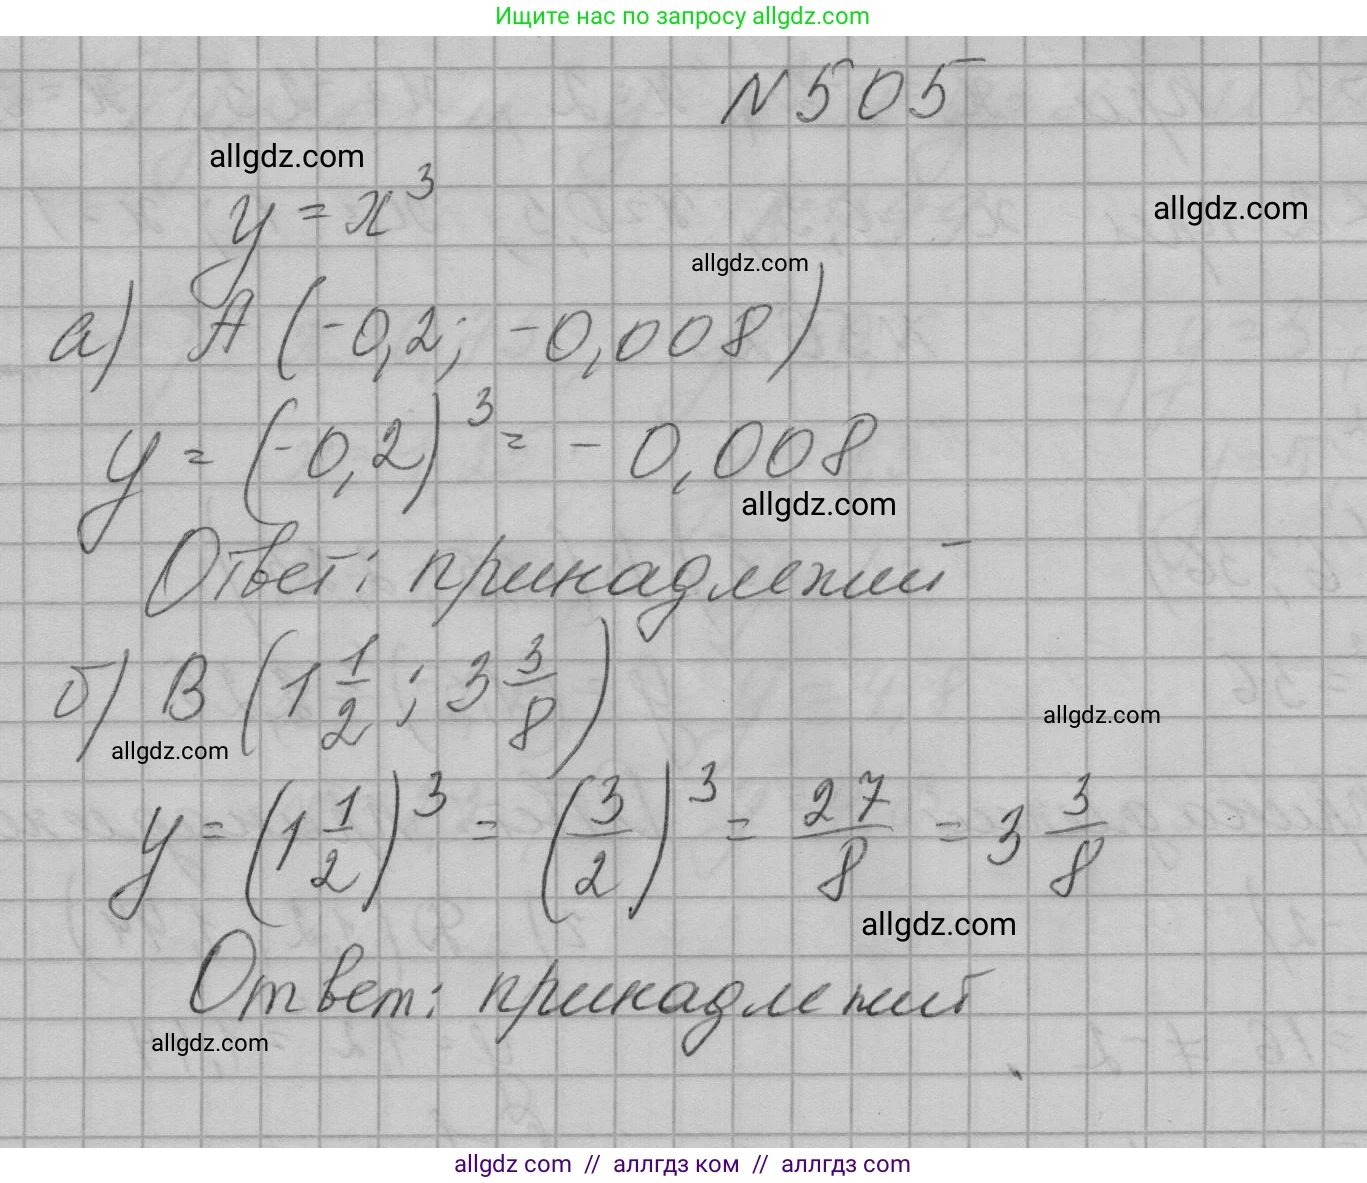 Ищите нас по запросу allgdz.com
N 505
allgdz.com
y = x³
allgdz.com
allgdz.com
а) A (-0,2; -0,008)
y = (-0,2)³ = -0,008
allgdz.com
Ответ: принадлежит
б) B (1 1/2 ; 3 3/8)
allgdz.com
allgdz.com
y = (1 1/2)³ = (3/2)³ = 27/8 = 3 3/8
allgdz.com
Ответ: принадлежит
allgdz.com
allgdz com // аллгдз ком // аллгдз com